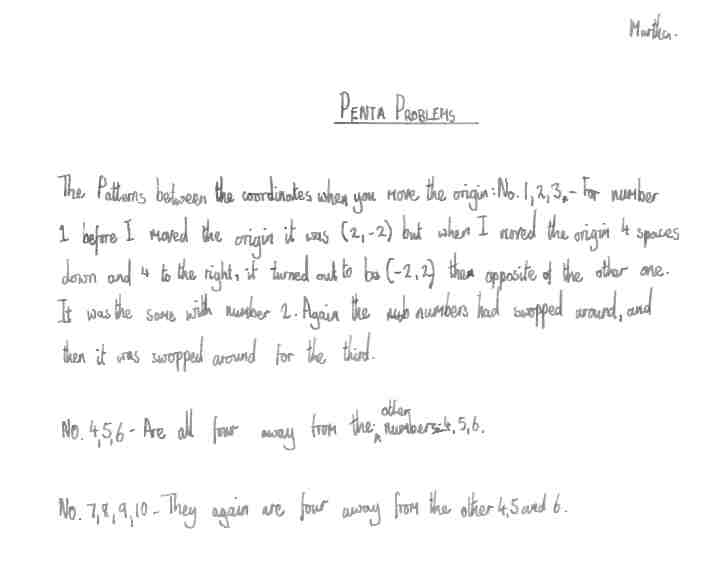 Martha.
PENTA PROBLEMS
The Patterns between the coordinates when you move the origin: No. 1, 2, 3, - For number
1 before I moved the origin it was (2, -2) but when I moved the origin 4 spaces
down and 4 to the right, it turned out to be (-2, 2) the opposite of the other one.
It was the same with number 2. Again the numbers had swopped around, and
then it was swopped around for the third.
No. 4, 5, 6 - Are all four away from the other numbers 4, 5, 6.
No. 7, 8, 9, 10 - They again are four away from the other 4, 5 and 6.